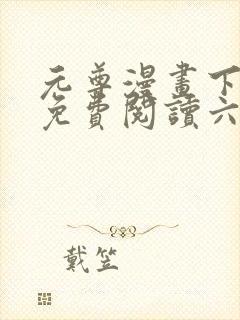 元尊漫畫下
免費閱讀六
戴笠